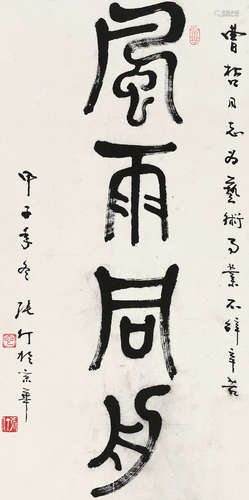 曹哲同志为藝術事業不辭辛苦
風雨同舟
甲子年冬張仃於京華